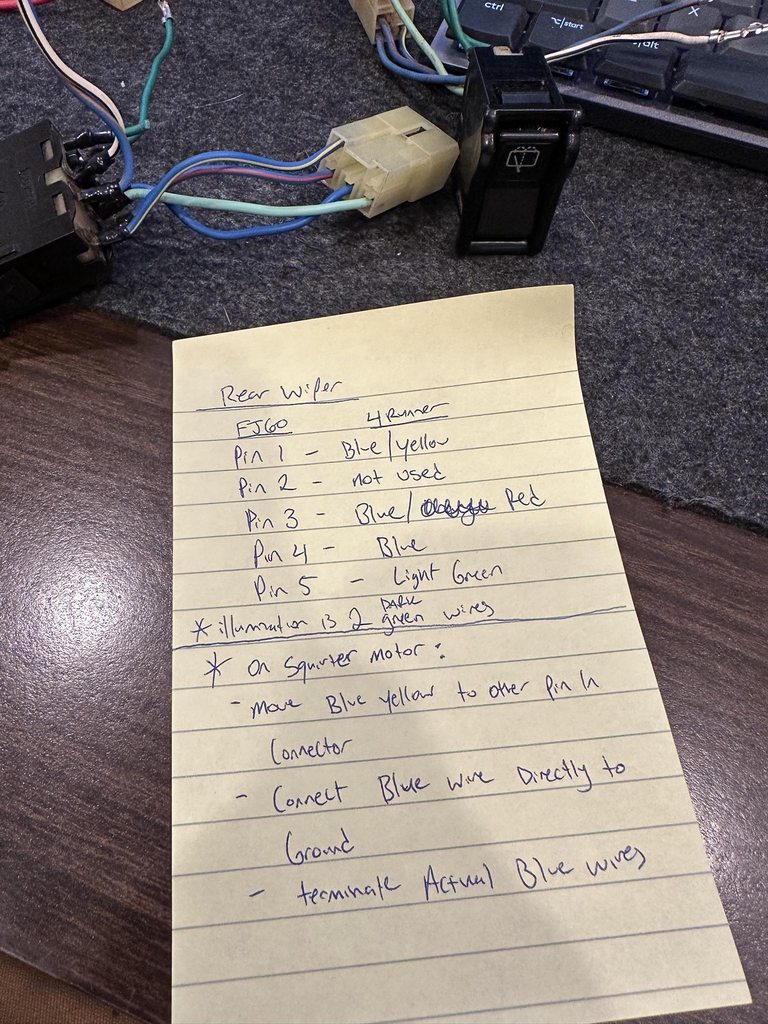 ctrl
⌥/start
X
⌘/alt
Rear Wiper
FJ60 4Runner
Pin 1 - Blue/yellow
Pin 2 - not used
Pin 3 - Blue/ Red
Pin 4 - Blue
Pin 5 - Light Green
* illumination is 2 DARK green wires
* on Squirter motor:
- move Blue yellow to other pin in
Connector
- Connect Blue wire Directly to
Ground
- terminate Actual Blue wires